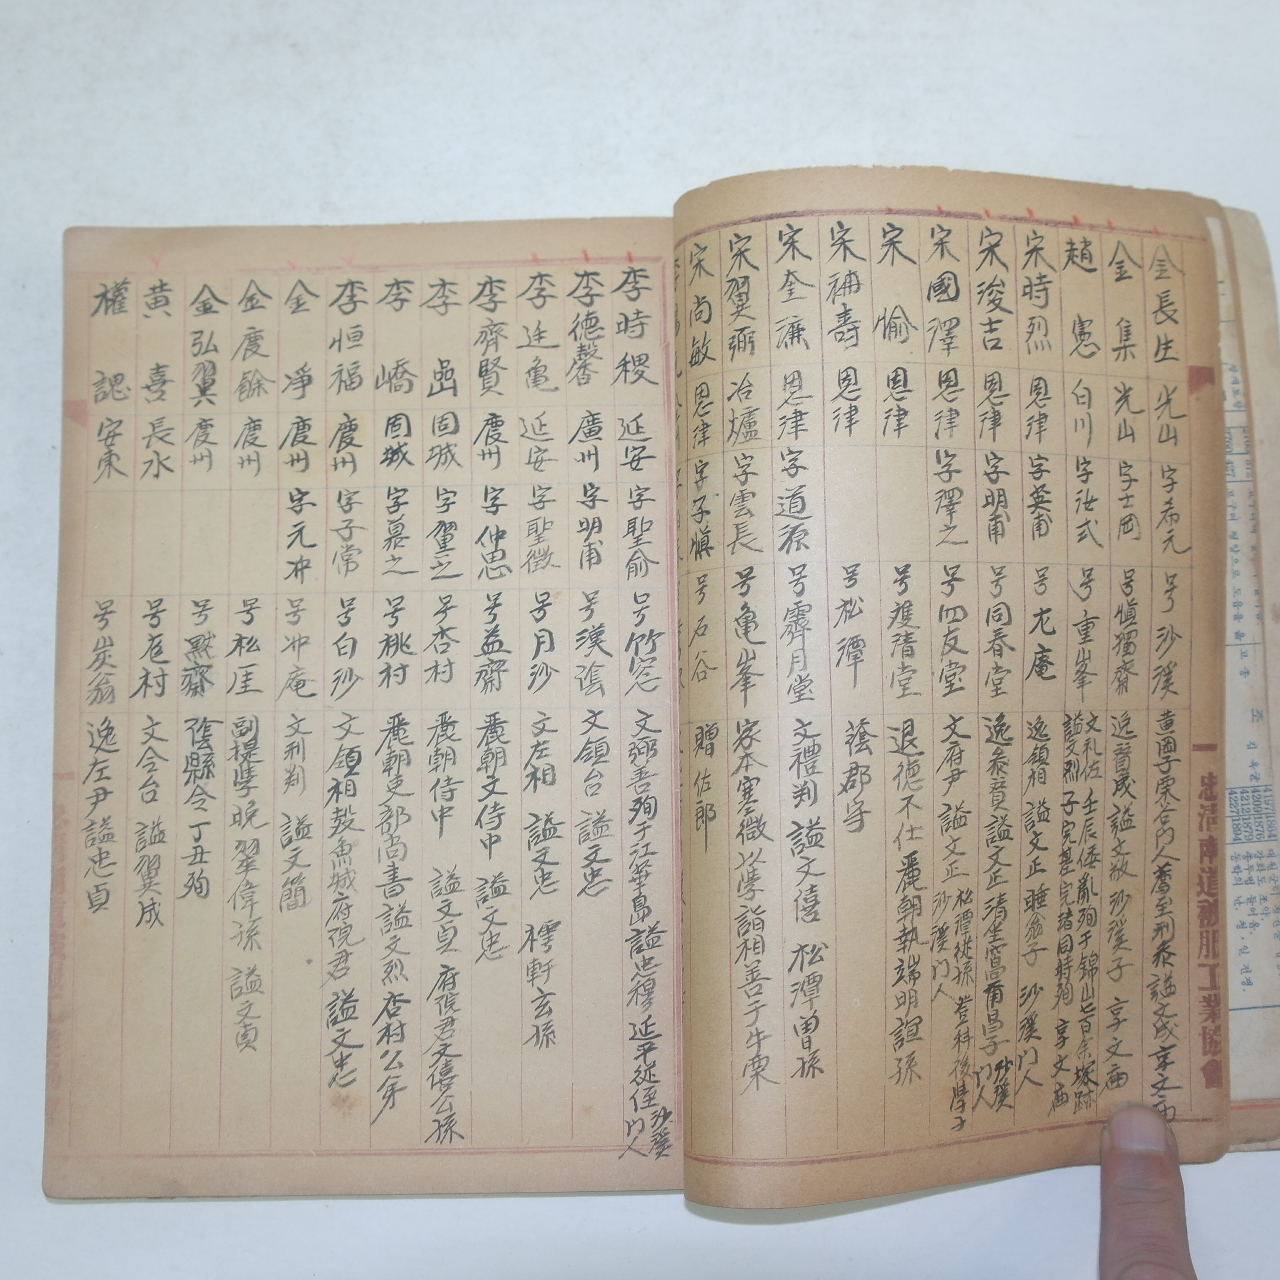 金長生 光山 字希元 号沙溪 黄岡子栗谷门人薦至刑参謚文成享文庙
金集 光山 字士岡 号愼獨齋 逸贊成謚文敬 沙溪子 享文庙
趙憲 白川 字汝式 号重峯 文礼佐 壬辰倭亂殉于錦山七百余塚跡
謚文烈 子完基完堵同時殉 享文庙
宋時烈 恩律 字英甫 号尤庵 逸領相 謚文正 睡翁子 沙溪门人
宋浚吉 恩律 字明甫 号同春堂 逸参贊謚文正清坐窩爾昌子 沙溪门人
宋國澤 恩律 字澤之 号四友堂 文府尹 謚文正 松潭從孫 登科後學于
沙溪门人
宋愉 恩律 号雙清堂 退德不仕 麗朝執端明誼孫
宋補壽 恩律 号松潭 蔭郡守
宋奎濂 恩律 字道源 号霽月堂 文禮判 謚文僖 松潭曽孫
宋翼弼 冶爐 字雲長 号龜峯 家本寒微以學詣相善于牛栗
宋尚敏 恩律 字子愼 号石谷 贈佐郎
李時稷 延安 字聖俞 号竹窓 文弼善殉于江華島謚忠穆 延平從侄 沙溪门人
李德馨 廣州 字明甫 号漢陰 文領台 謚文忠
李廷亀 延安 字聖徵 号月沙 文左相 謚文忠 樗軒玄孫
李齊賢 慶州 字仲思 号益齋 麗朝文侍中 謚文忠
李嵒 固城 字翼之 号杏村 麗朝侍中 謚文貞 府院君文僖公孫
李嶠 固城 字慕之 号桃村 麗朝吏部尚書謚文烈 杏村公弟
李恒福 慶州 字子常 号白沙 文領相 鰲城府院君 謚文忠
金淨 慶州 字元冲 号冲庵 文刑判 謚文簡
金慶餘 慶州 号松厓 副提學晩翠偉孫 謚文貞
金弘翼 慶州 号黙齋 陰縣令丁丑殉
黄喜 長水 号厖村 文令台 謚翼成
權諰 安東 号炭翁 逸左尹謚忠貞
忠清南道被服工業協會